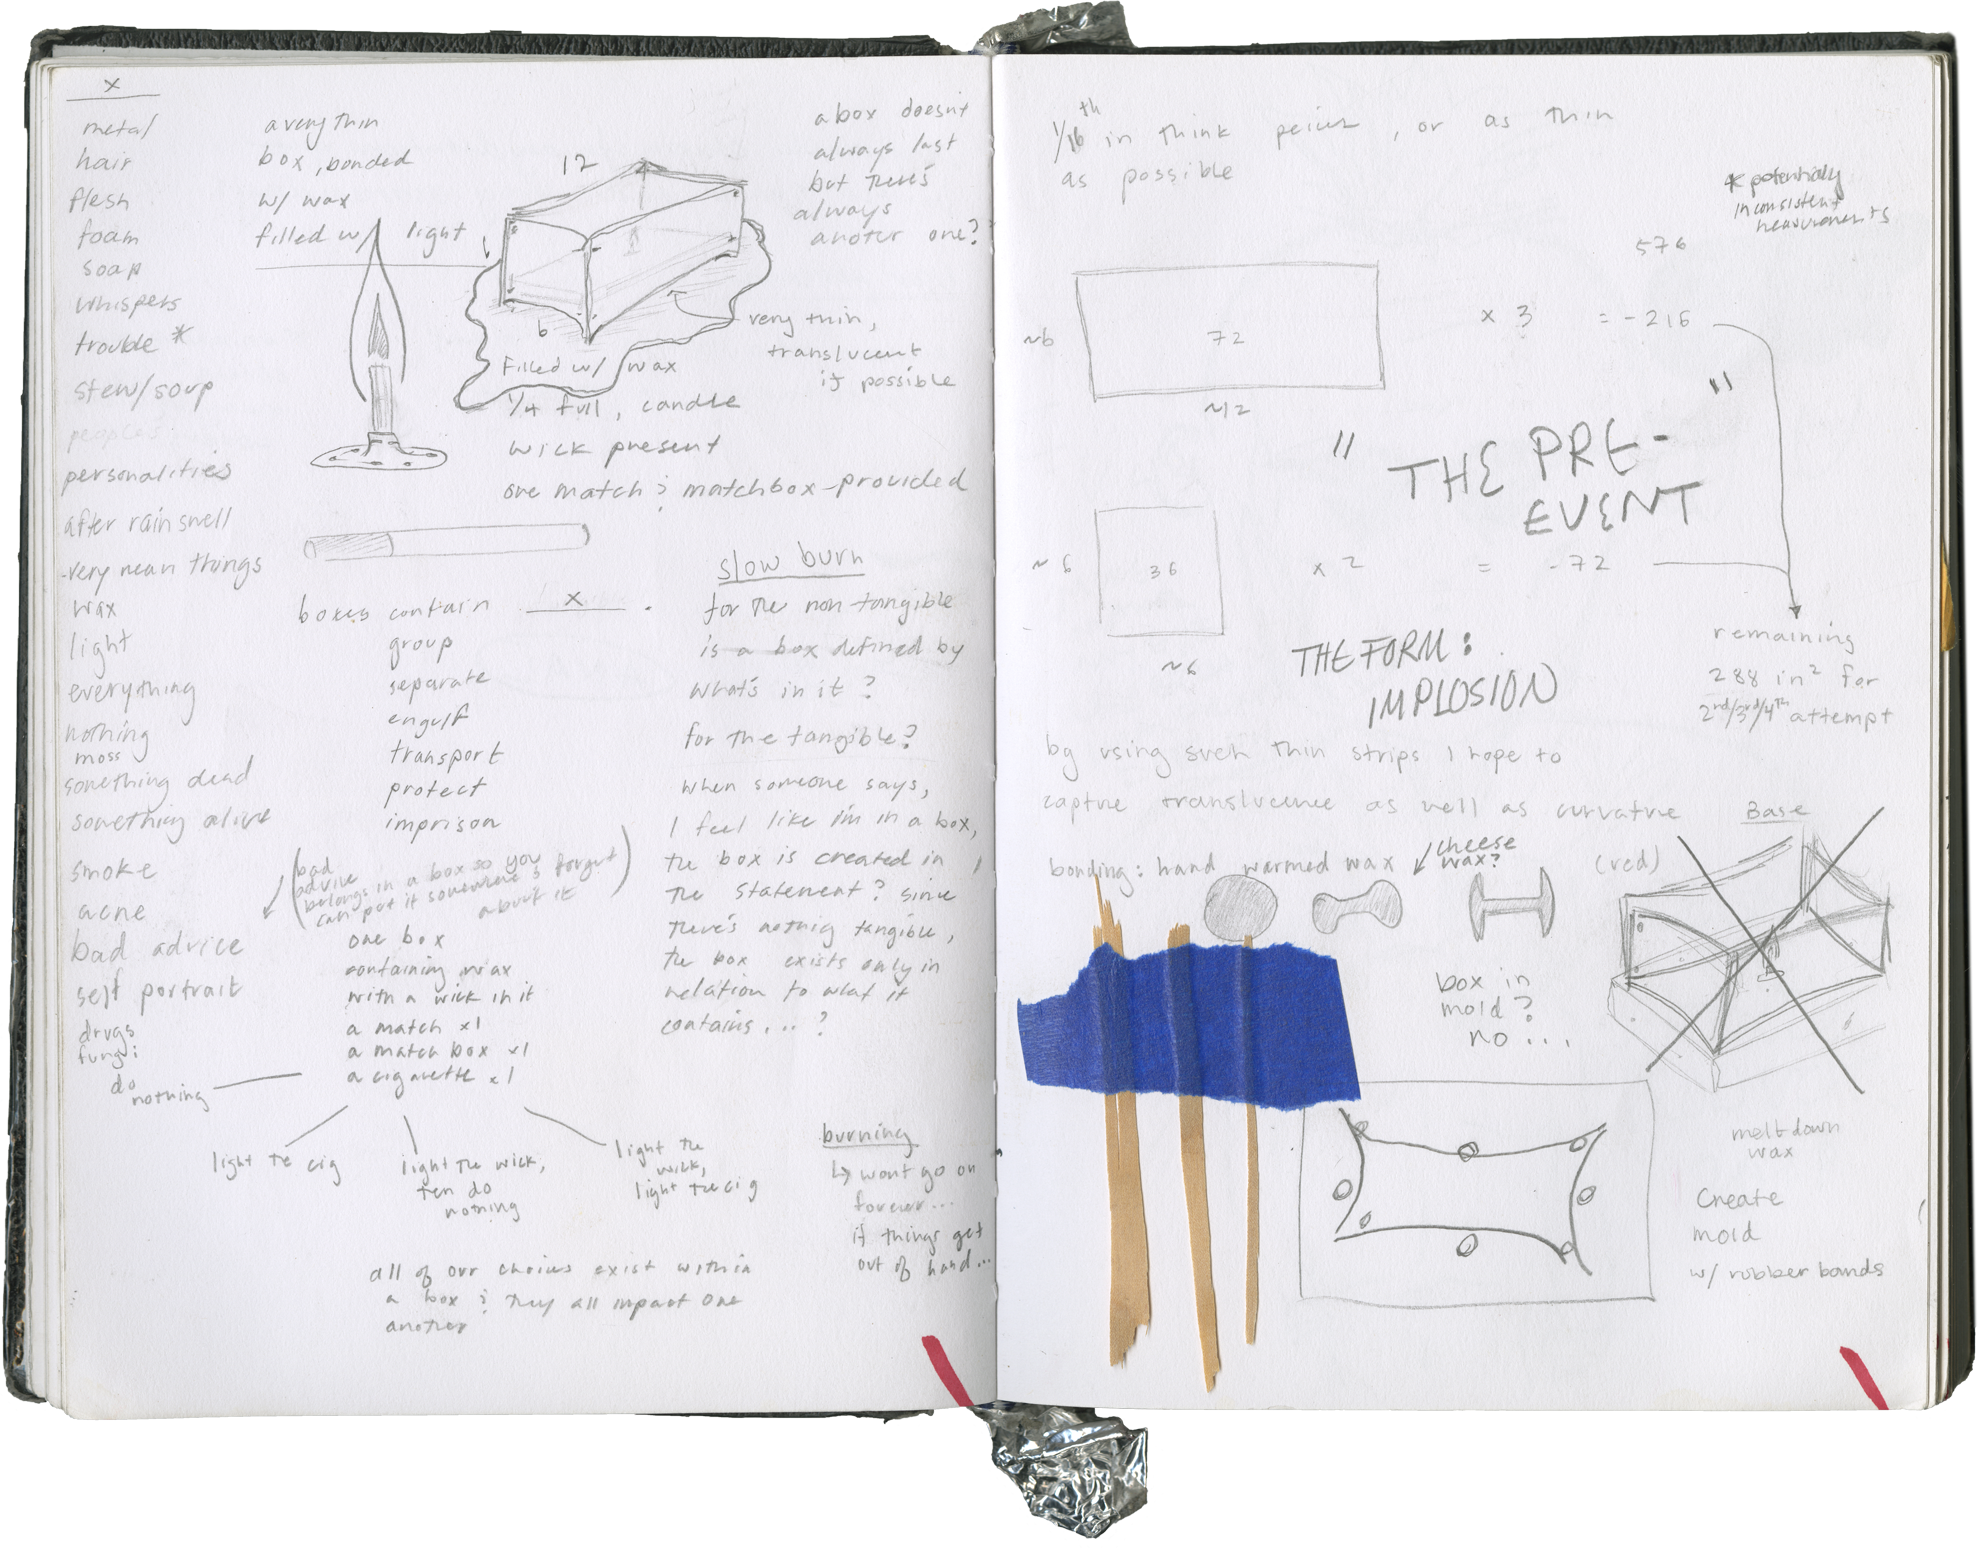 x
metal
hair
flesh
foam
soap
whispers
trouble *
stew/soup
peoples
personalities
after rain smell
very mean things
wax
light
everything
nothing
moss
something dead
something alive
smoke
acne
bad advice
self portrait
drugs
fungi
a very thin
box, bonded
w/ wax
filled w/ light
12
6
very thin,
translucent
if possible
Filled w/ wax
1/4 full, candle
wick present
one match & matchbox-provided
a box doesn't
always last
but there's
always
anoter one?
boxes contain x .
group
separate
engulf
transport
protect
imprison
(bad
advice
belongs in a box so you
can put it somewhere & forget
about it)
one box
containing wax
with a wick in it
a match x1
a match box x1
a cigarette x1
do
nothing
light the cig
light the wick,
then do
nothing
light the
wick,
light the cig
all of our choices exist within
a box & they all impact one
another
slow burn
for the non tangible
is a box defined by
what's in it?
for the tangible?
when someone says,
I feel like i'm in a box,
the box is created in
the statement? since
there's nothing tangible,
the box exists only in
relation to what it
contains...?
burning
↳ wont go on
forever...
if things get
out of hand...
1/16th in think peices, or as thin
as possible
* potentially
inconsistent
measurements
576
~6
72
~12
x 3 = -216
"THE PRE-
EVENT"
~6
36
~6
x 2 = -72
remaining
288 in² for
2nd/3rd/4th attempt
THE FORM:
IMPLOSION
by using such thin strips I hope to
captue translucence as well as curvature
bonding: hand warmed wax
cheese
wax?
(red)
Base
box in
mold?
no...
melt down
wax
Create
mold
w/ rubber bands